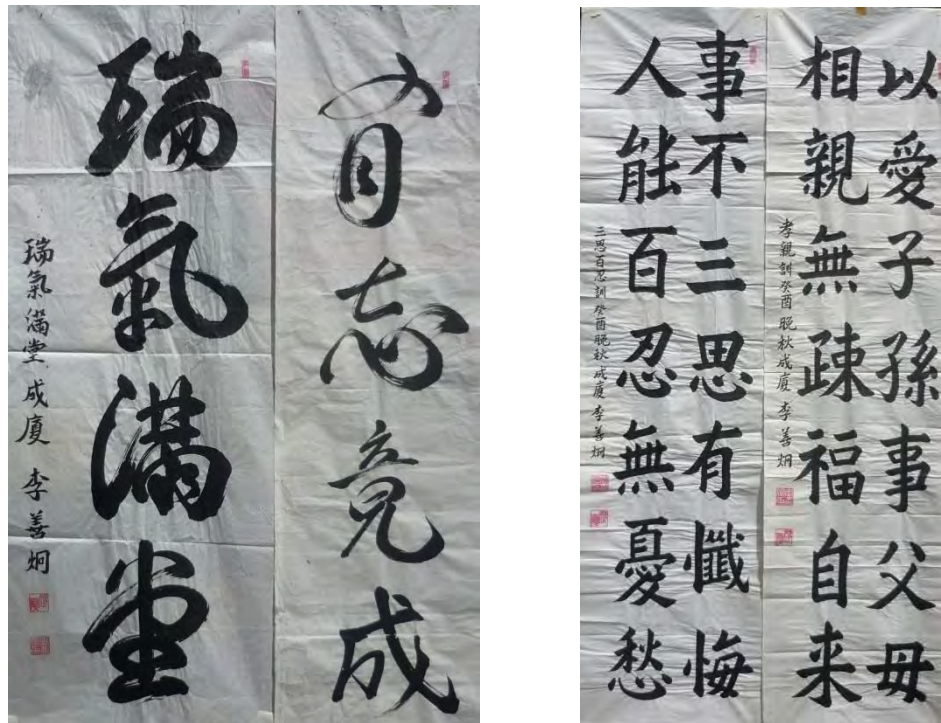 有志竟成
瑞氣滿堂
瑞氣滿堂 成廈 李善炯
以愛子孫事父母
相親無疎福自来
孝親訓癸酉晩秋成廈 李善炯
事不三思有懺悔
人能百忍無憂愁
三思百忍訓癸酉晩秋成廈 李善炯